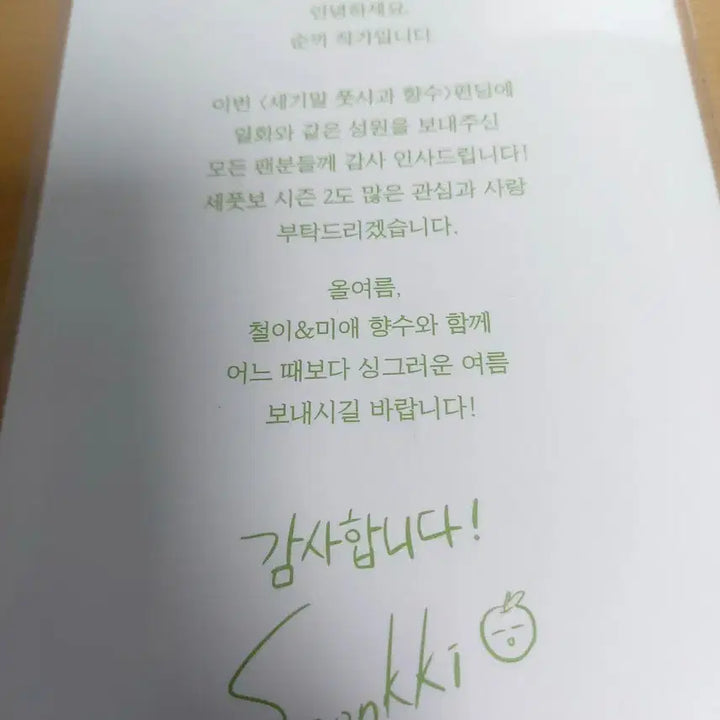 안녕하세요.
순끼 작가입니다.
이번 <세기말 풋사과 향수>펀딩에
일화와 같은 성원을 보내주신
모든 팬분들께 감사 인사드립니다!
세풋보 시즌 2도 많은 관심과 사랑
부탁드리겠습니다.
올여름,
철이&미애 향수와 함께
어느 때보다 싱그러운 여름
보내시길 바랍니다!
감사합니다!
Soonkki